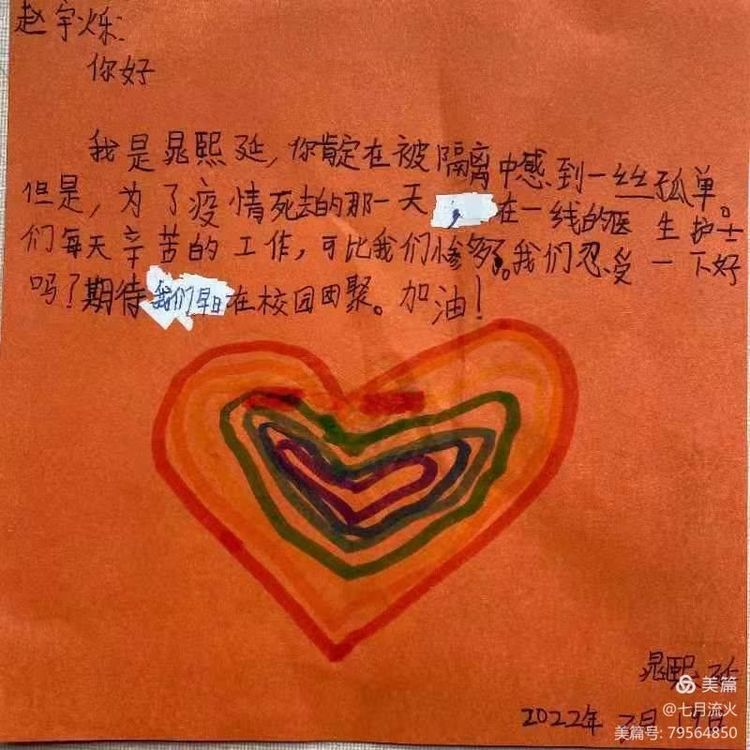 赵宇烁:
你好
我是晁熙延,你肯定在被隔离中感到一丝孤单。
但是,为了疫情死去的那一天,在一线的医生护士
们每天辛苦的工作,可比我们惨多了。我们忍受一下好
吗?期待我们早日在校园团聚。加油!
晁熙延
美篇
@七月流火
2022年2月19日
美篇号: 79564850